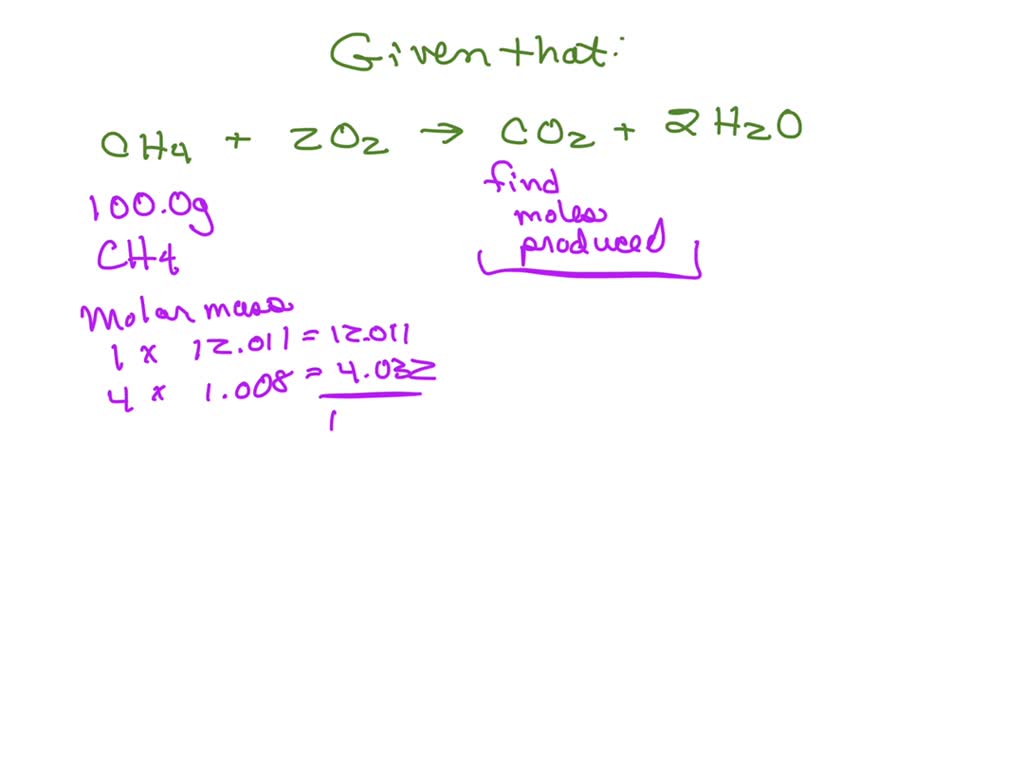 Given that:
CH4 + 2O2 → CO2 + 2H2O
100.0g
CH4
find
moles
produced
Molar mass
1 x 12.011 = 12.011
4 x 1.008 = 4.032
1